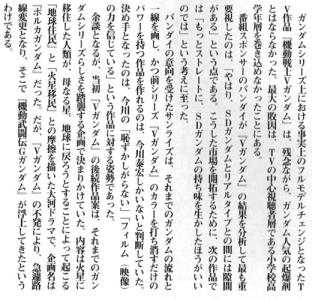 ガンダムシリーズ上における事実上のフルモデルチェンジとなったT
V作品『機動戦士Vガンダム』は、残念ながら、ガンダム人気の起爆剤
とはならなかった。最大の敗因は、TVの中心視聴者層である小学校高
学年層を巻き込めなかったことにある。
番組スポンサーのバンダイが『Vガンダム』の結果を分析して最も重
要視したのは、「やはり、SDガンダムとリアルタイプとの間には隙間
がある」という点である。こうした市場を開拓するために、次の作品で
は「もっとストレートに、SDガンダムの持ち味を生かしたほうがいい
のでは」という考えに至った。
バンダイの意向を受けたサンライズは、それまでのガンダムの流れと
一線を画し、かつ前シリーズ『Vガンダム』のカラーを打ち消すだけの
パワーを持つ作品を作れるのは、今川泰宏しかいないと判断していた。
決め手となったのは、今川の「恥ずかしがらない」「フィルム（映像）
の力を信じている」という作品に対する姿勢であった。
余談となるが、当初『Vガンダム』の後続作品案は、それまでのガン
ダムシリーズらしさを踏襲する企画で決まりかけていた。内容は火星に
移住した人類が、母なる星、地球に戻ろうとすることによって起こる
「地球住民」と「火星移民」との摩擦を描いた大河ドラマで、企画名は
『ポルカガンダム』だった。だが、『Vガンダム』の不発により、急遽路
線変更となり、そこで『機動武闘伝Gガンダム』が浮上してきたという
わけである。